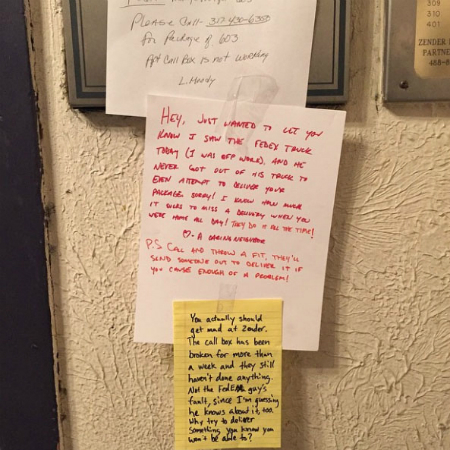 Please Call- 317-430-6303
for Package of 603
Apt Call Box is not working
L. Moody
309
310
401
ZENDER
PARTNE
Hey, just wanted to let you
know I saw the FedEx truck
today (I was off work), and he
never got out of his truck to
even attempt to deliver your
package. Sorry! I know how much
it sucks to miss a delivery when you
were home all day! They do it all the time!
♡- A caring neighbor
P.S. Call and throw a fit. They'll
send someone out to deliver it if
you cause enough of a problem!
You actually should
get mad at Zender.
The call box has been
broken for more than
a week and they still
haven't done anything.
Not the FedEx guy's
fault, since I'm guessing
he knows about it, too.
Why try to deliver
something you know you
won't be able to?